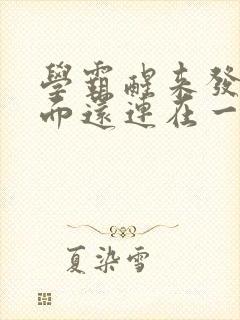 學霸醒來發
而還連在一
夏染雪